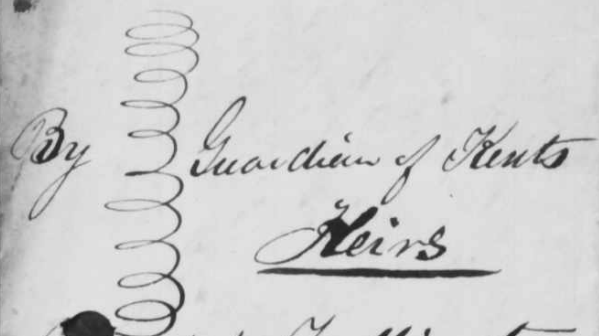 By Guardian of Kents
Heirs